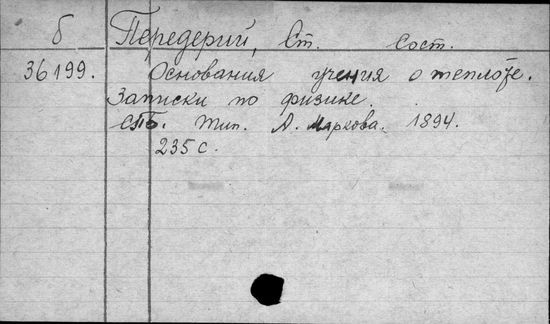 б Передерий, Ст. сост.
36199. Основания учения о теплоте.
Записки по физике.
СПБ. тип. А. Маркова. 1894.
235 с.